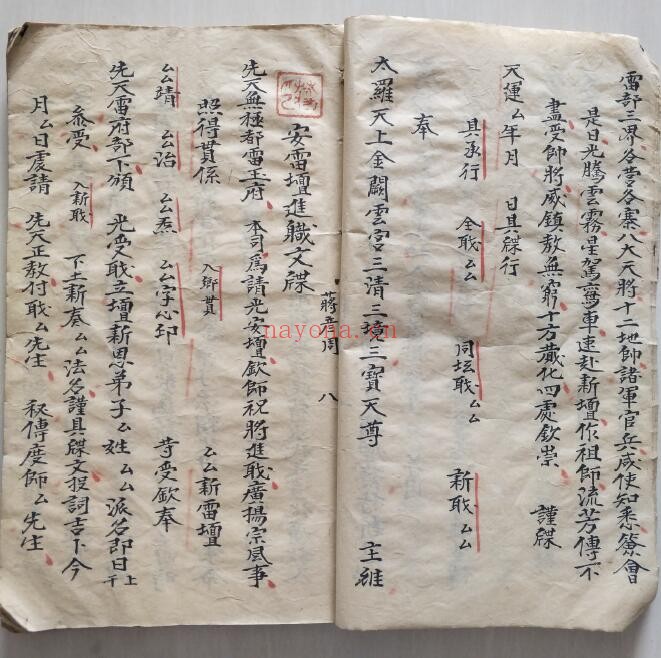 雷部三界各营各寨八大天將十二地師諸軍官兵咸使知悉簽會
是日光騰雲霧星駕鸞車速赴新壇作祖師流芳傳不
盡受師將威鎮教無窮十方歲化四處欽崇 謹牒
天運厶年月 日具牒行
具承行 全職厶厶 同坛職厶厶 新職厶厶
奉
大羅天上金闕雲宮三清三境三寶天尊 主維
蔣 周 八
安雷壇進職文牒
先天無極都雷玉府 本司爲請光安壇欽師祝將進職廣揚宗風事
照得貫係 入鄉貫 厶厶新雷壇
厶厶靖 厶厶治 厶厶炁 厶厶字心印 等受欽奉
先天雷府部下頒 光受職立壇新恩弟子厶姓 厶厶派名即日上干
叅受 入新職 下土新奏厶厶法名謹具牒文投詞吉卜今
月厶日虔請 先天正教付職厶先生 秘傳度師厶先生
nayona.cn